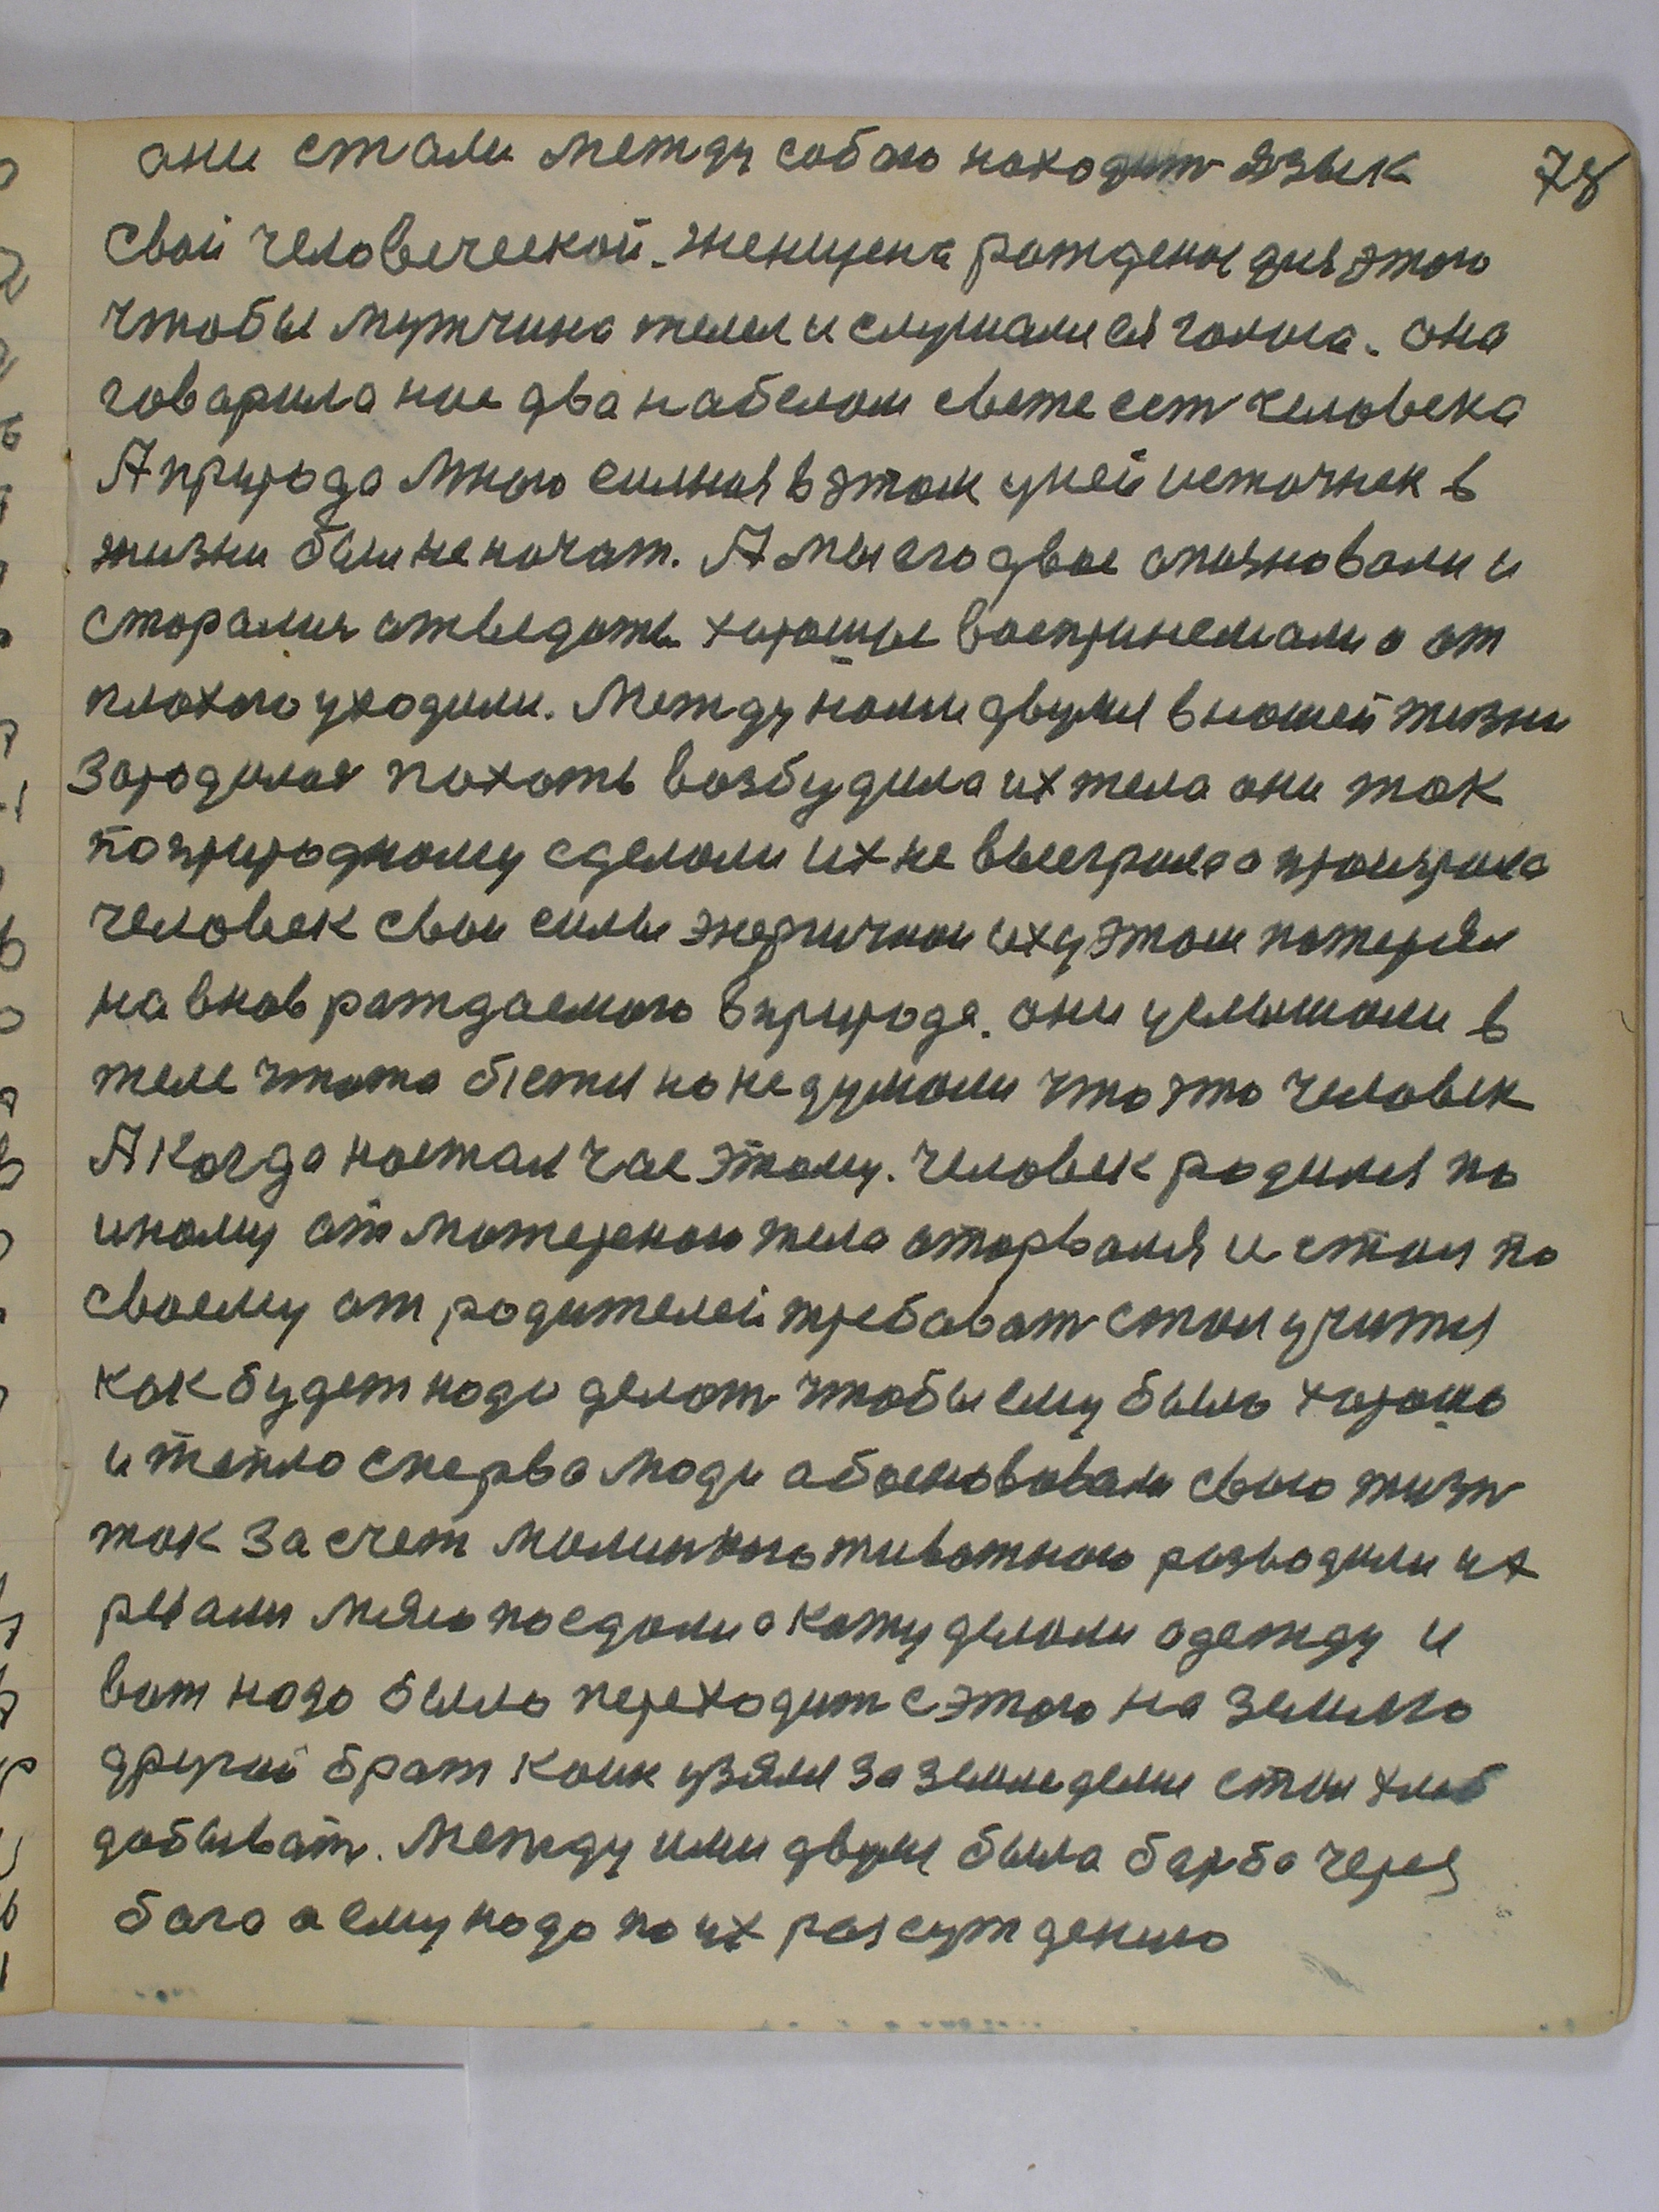 78
они стали между собою находит язык
свой человеческой. женщена рождена для этого
чтобы мужчина телел и слушали ея голоса. она
говарила нас два на белом свете ест человека
А природа много силная в этом у ней источнек в
жизни был не початт. А мы его двое опазновали и
сторалися отведать хорошые воспринемали а от
плохого уходили. Между нами двумя в нашей жизни
Зародилоя похоть возбудила их тела они так
поприродному сделали их не выеграла а проиграла
человек свои силы энергичнои их у этом потерял
на внов раждаемого в природе. они услышали в
теле чтото бется но не думали что это человек
А когда настал час этому. человек родился по
иному от матереного тела оторвался и стал по
своему от родителей требават стал учится
как будет надо делат чтобы ему было хорошо
и тепло сперва люди обоснововали свою жизн
так за счет малинкого животного разводили их
резали мясо поедали а кожу делали одежду и
вот надо было переходит с этого на землю
другий брат Каин узялся за земледелие стал хлеб
добыват. Между ими двумя была барба через
бога а ему надо по их рассуждению